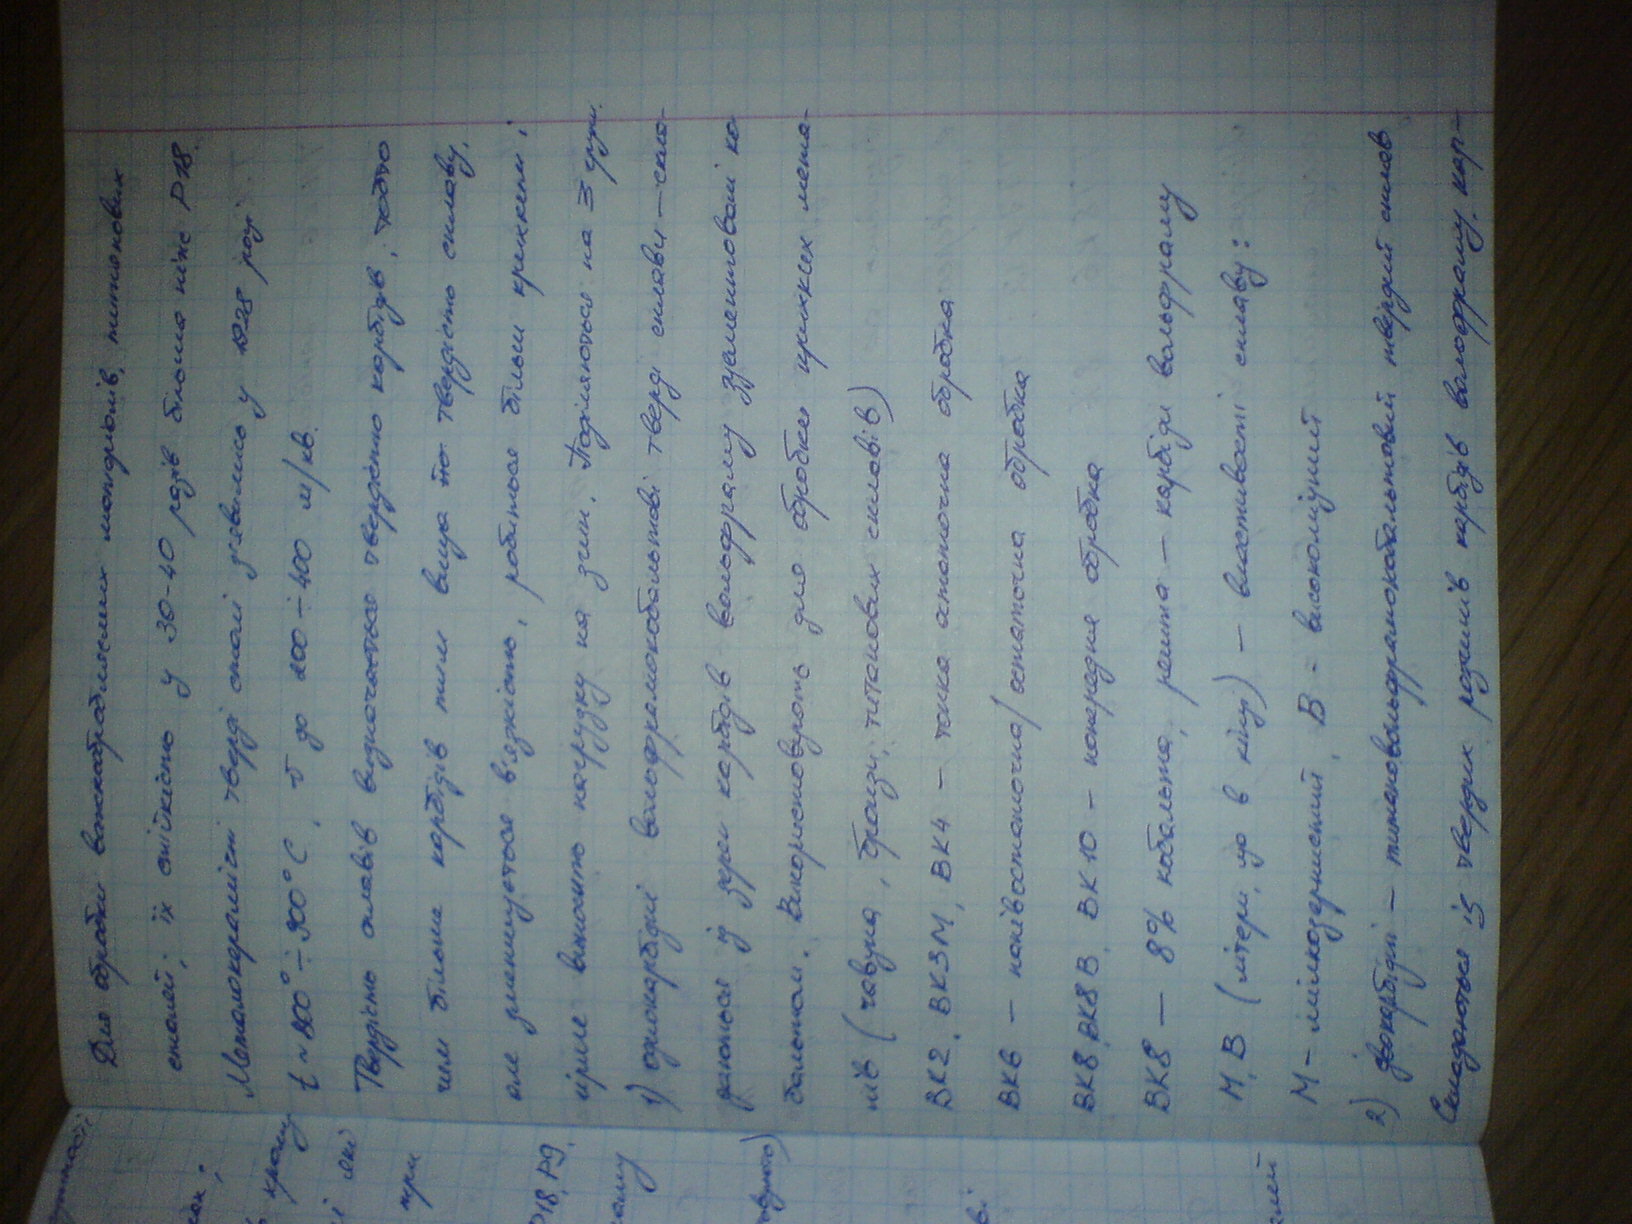 Для обробки важкооброблюємих матеріалів, титанових
сталей, їх стійкістю у 30-40 разів більша ніж Р18.
Металокерамічні тверді сталі з'явились у 1928 році
t ~ 800° ÷ 900° С, V до 200 ÷ 400 м/хв.
Твердість сплавів визначається твердістю карбідів,
чим більша карбідів тим вища твердість сплаву,
але зменшується в'язкість, робиться більш крихким і
гірше виносить нагрузку на згин. Поділяються на 3 групи.
1) однокарбідні вольфрамокобальтові тверді сплави – скла-
даються із зерен карбідів вольфраму зцементовані ко-
бальтом. Використовують для обробки крихких мета-
лів (чавуна, бронзи, титанових сплавів)
ВК2, ВК3М, ВК4 – тонка остаточна обробка
ВК6 – напівостаточна/остаточна обробка
ВК8, ВК8В, ВК10 – попередня обробка
ВК8 – 8% кобальта, решта – карбіди вольфраму
М, В (літери, що в кінці) – властивості сплаву:
М – мілкозернистий, В –
2) двокарбідні – титановольфрамокобальтовий твердий сплав
Складаються із твердих розчинів карбідів вольфраму, кар-
краму
які
при
Р18, Р9,